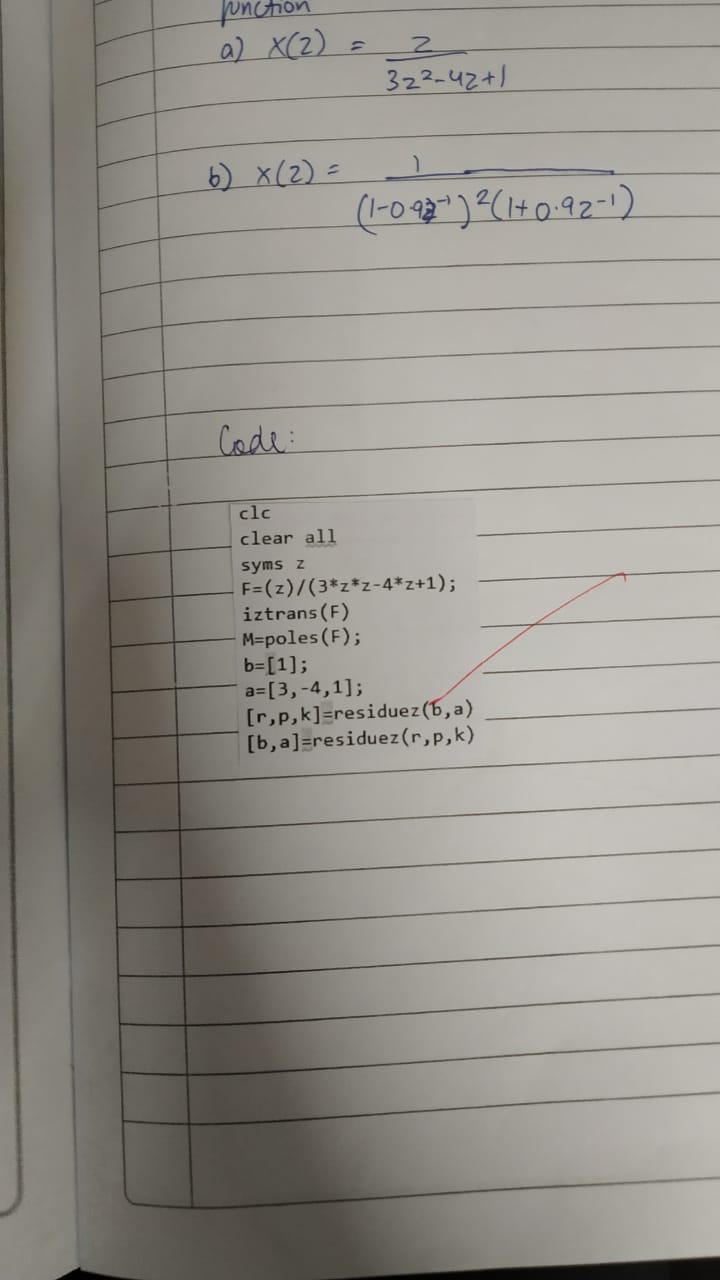 function
a) X(z) = z
3z²-4z+1
b) X(z) = 1
(1-0.9z⁻¹)²(1+0.9z⁻¹)
Code:
clc
clear all
syms z
F=(z)/(3*z*z-4*z+1);
iztrans(F)
M=poles(F);
b=[1];
a=[3,-4,1];
[r,p,k]=residuez(b,a)
[b,a]=residuez(r,p,k)